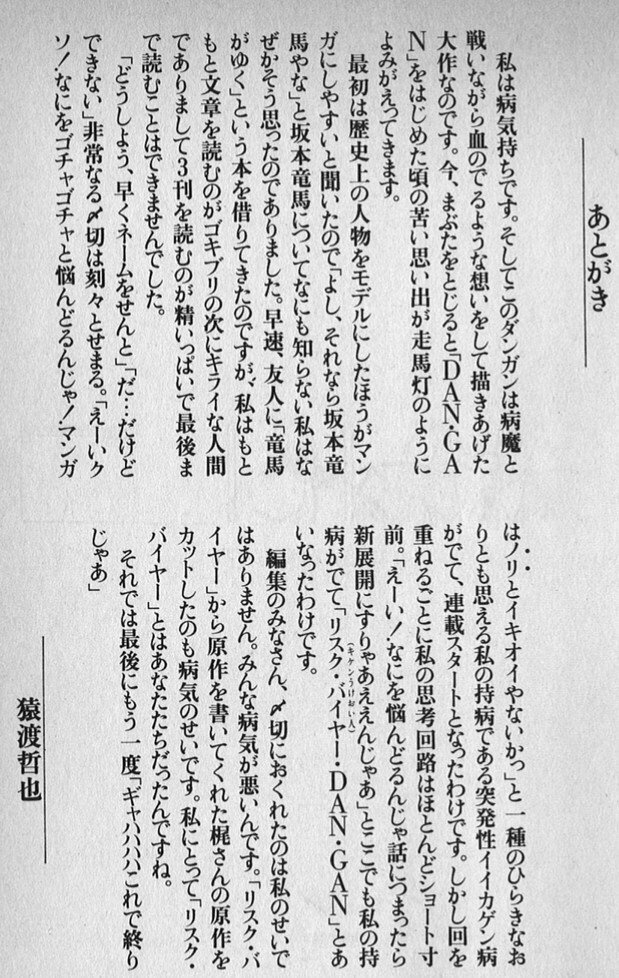 あとがき
私は病気持ちです。そしてこのダンガンは病魔と
戦いながら血のでるような想いをして描きあげた
大作なのです。今、まぶたをとじると「DAN・GA
N」をはじめた頃の苦い思い出が走馬灯のように
よみがえってきます。
最初は歴史上の人物をモデルにしたほうがマン
ガにしやすいと聞いたので「よし、それなら坂本竜
馬やな」と坂本竜馬についてなにも知らない私はな
ぜかそう思ったのでありました。早速、友人に「竜馬
がゆく」という本を借りてきたのですが、私はもと
もと文章を読むのがゴキブリの次にキライな人間
でありまして3刊を読むのが精いっぱいで最後ま
で読むことはできませんでした。
「どうしよう、早くネームをせんと」「だ…だけど
できない」非常なる〆切は刻々とせまる。「えーいク
ソ!なにをゴチャゴチャと悩んどるんじゃ!マンガ
はノリとイキオイやないかっ」と一種のひらきなお
りとも思える私の持病である突発性イイカゲン病
がでて、連載スタートとなったわけです。しかし回を
重ねるごとに私の思考回路はほとんどショート寸
前。「えーい!なにを悩んどるんじゃ話につまったら
新展開にすりゃあええんじゃあ」とここでも私の持
病がでて「リスク・バイヤー(キケンうけおい人)・DAN・GAN」とあ
いなったわけです。
編集のみなさん、〆切におくれたのは私のせいで
はありません。みんな病気が悪いんです。「リスク・バ
イヤー」から原作を書いてくれた梶さんの原作を
カットしたのも病気のせいです。私にとって「リスク・
バイヤー」とはあなたたちだったんですね。
それでは最後にもう一度「ギャハハハハこれで終り
じゃあ」
猿渡哲也